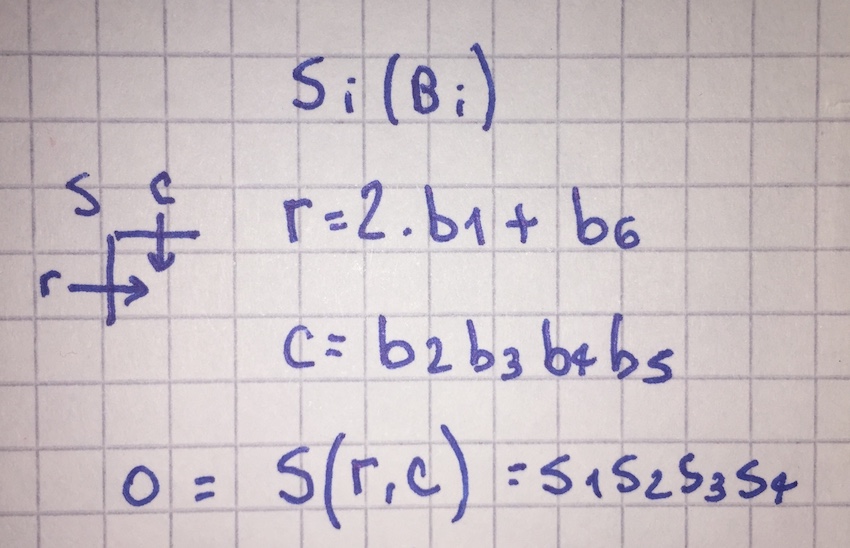 Si(Bi)
S c r=2.b1+ b6
r
c= b2b3b4b5
0 = S(r,c) =s1s2s3s4